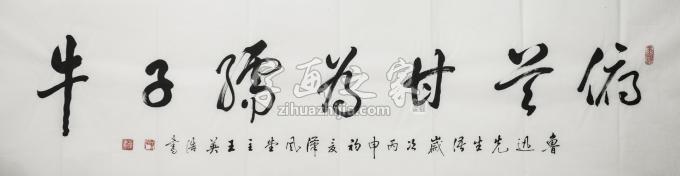 俯首甘为孺子牛
鲁迅先生语岁次丙申初夏泽风堂主王英浩书
字画之家
zihuazhijia.com